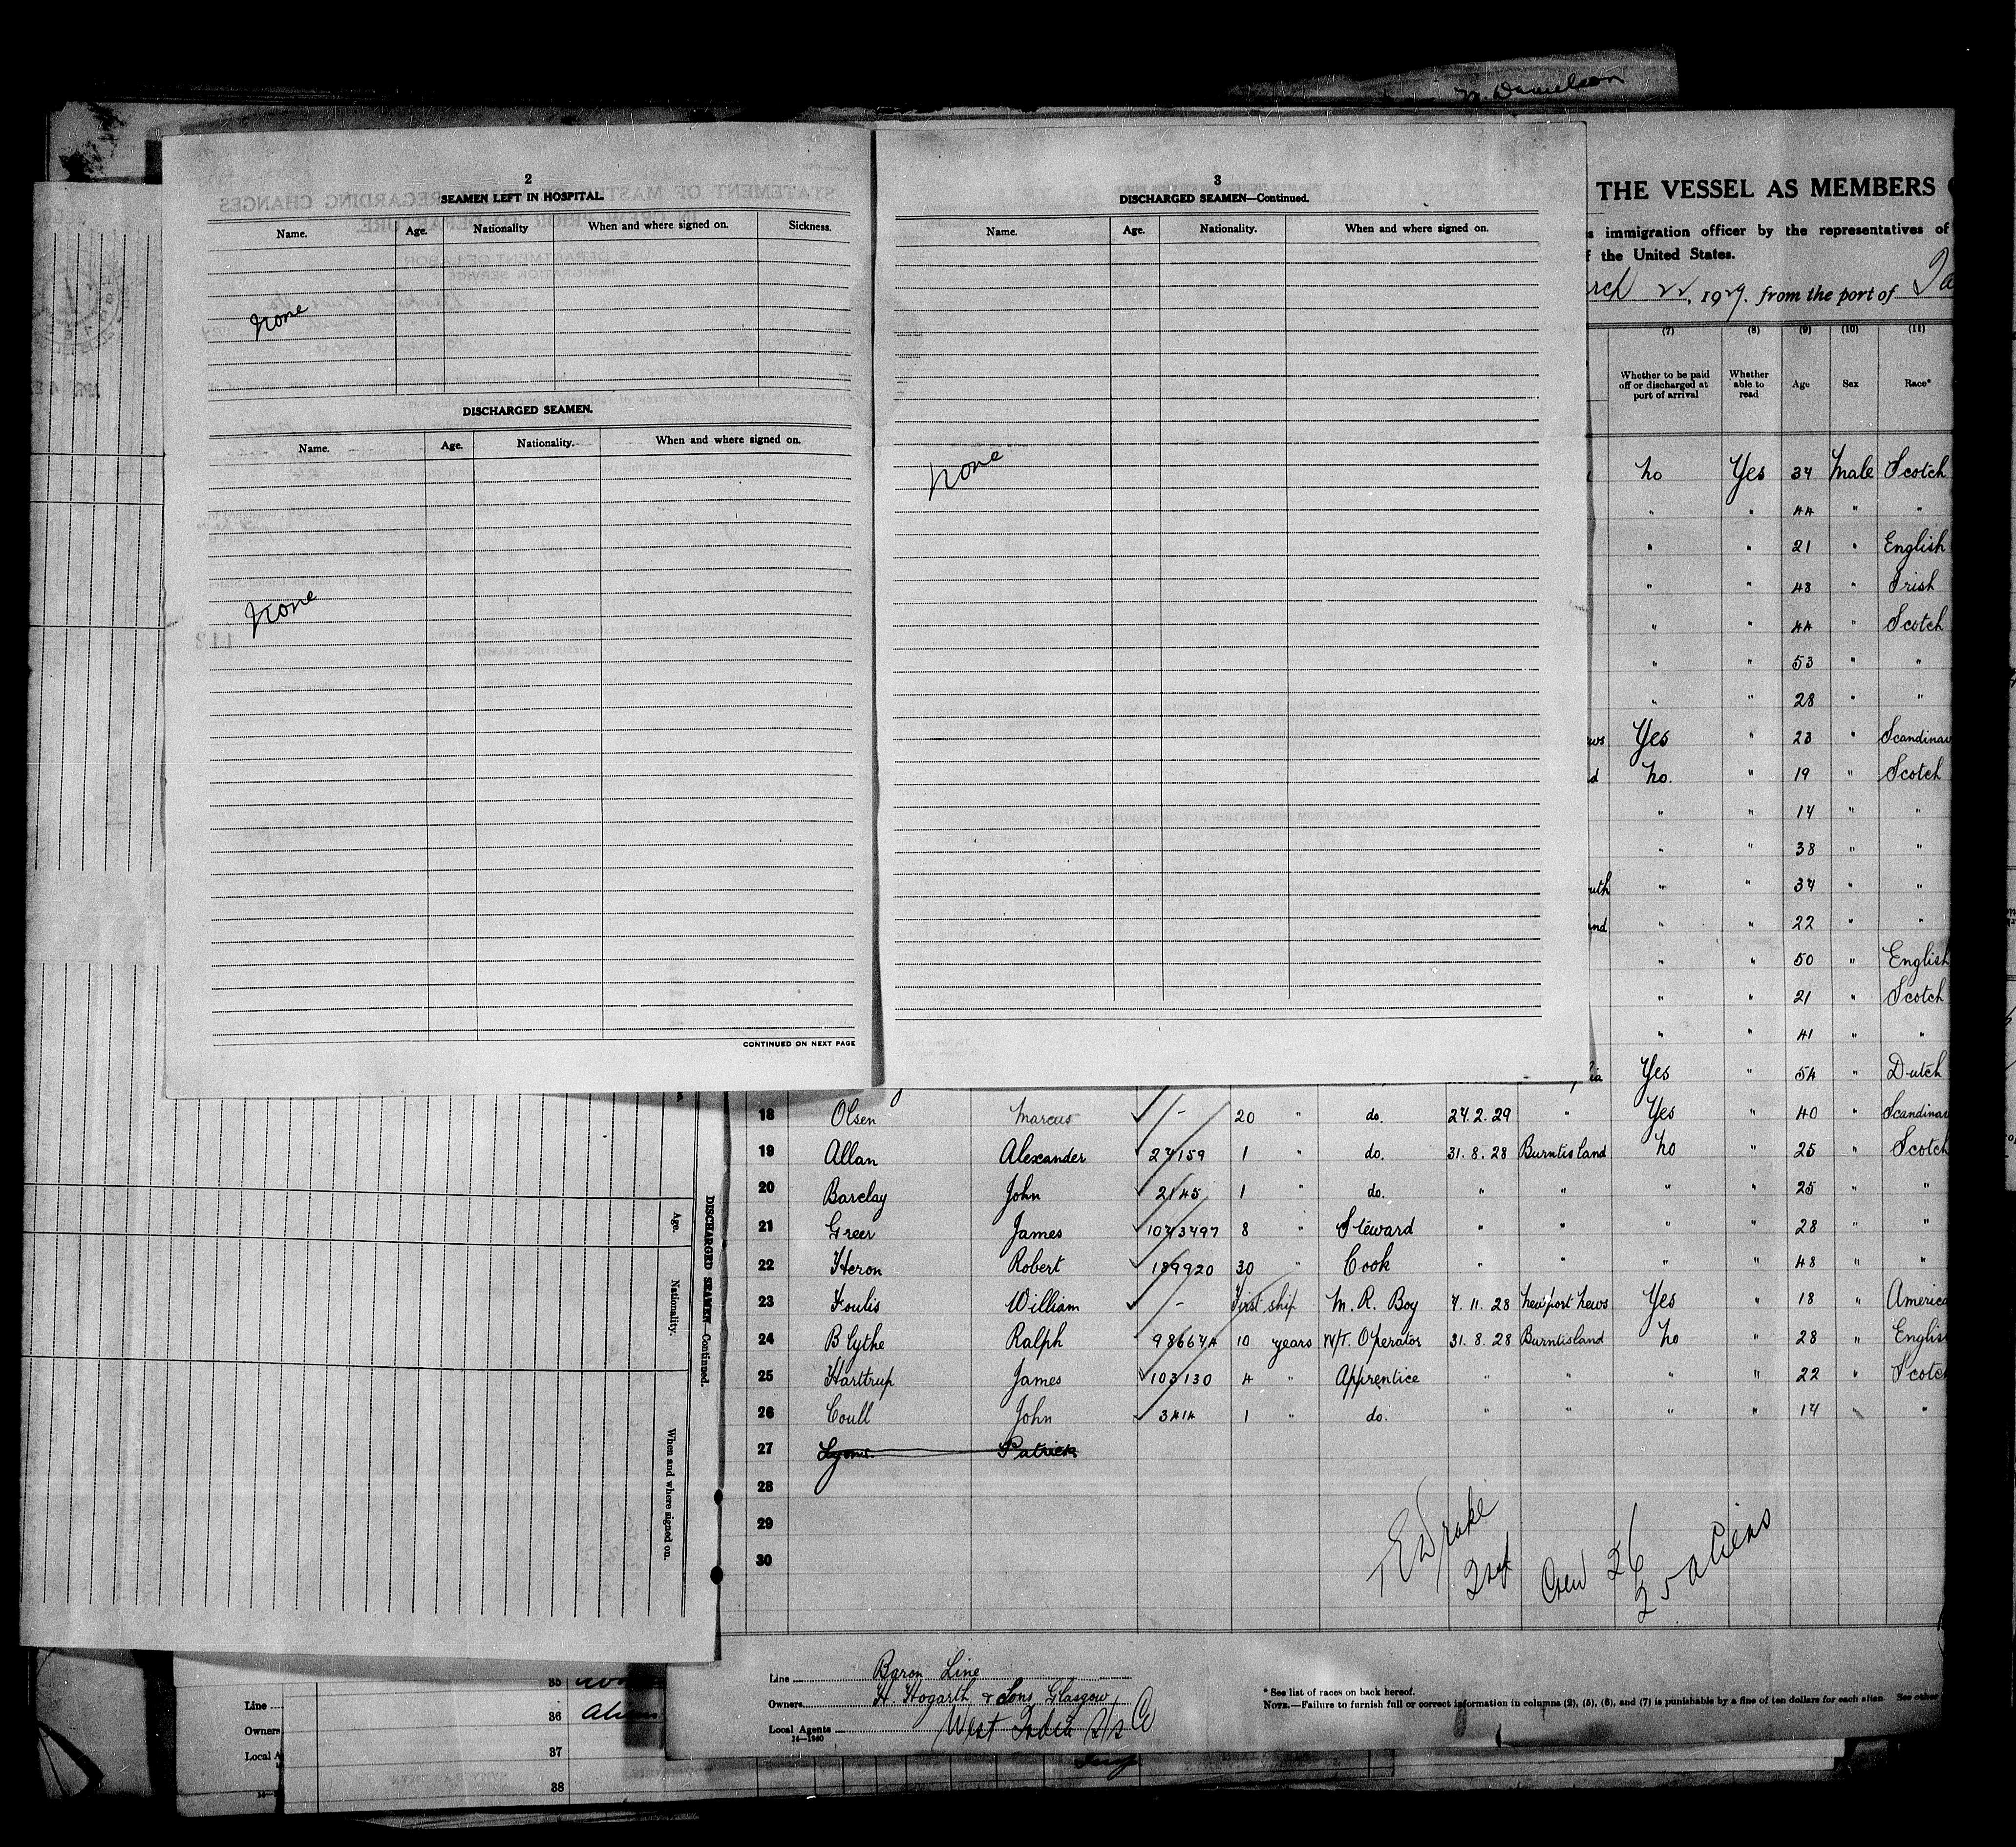 M. Danielson
2
SEAMEN LEFT IN HOSPITAL.
Name. Age. Nationality When and where signed on. Sickness.
None
DISCHARGED SEAMEN.
Name. Age. Nationality. When and where signed on.
None
CONTINUED ON NEXT PAGE
3
DISCHARGED SEAMEN—Continued.
Name. Age. Nationality. When and where signed on.
None
THE VESSEL AS MEMBERS
immigration officer by the representatives of
the United States.
rch 22, 1929. from the port of
(7) (8) (9) (10) (11)
Whether to be paid off or discharged at port of arrival Whether able to read Age Sex Race*
No Yes 37 Male Scotch
" " 44 " "
" " 21 " English
" " 48 " Irish
" " 44 " Scotch
" " 53 " "
" " 28 " "
ws Yes " 23 " Scandinav
d No. " 19 " Scotch
" " 17 " "
" " 38 " "
uth " " 37 " "
and " " 22 " "
" " 50 " English
" " 21 " Scotch
" " 41 " "
ia Yes " 54 " Dutch
18 Olsen Marcus - 20 " do. 27.2.29 " Yes " 40 " Scandinav
19 Allan Alexander 27159 1 " do. 31.8.28 Burntisland No " 25 " Scotch
20 Barclay John 2145 1 " do. " " " " 25 " "
21 Greer James 1043497 8 " Steward " " " " 28 " "
22 Heron Robert 189920 30 " Cook " " " " 48 " "
23 Foulis William - First ship M. R. Boy 7.11.28 Newport News Yes " 18 " America
24 Blythe Ralph 986674 10 years W/T. Operator 31.8.28 Burntisland No " 28 " Englis
25 Harttrup James 103130 4 " Apprentice " " " " 22 " Scotc
26 Coull John 3414 1 " do. " " " " 17 "
27 Lyons Patrick
28
29
30
E Drake
Crew 26
25 aliens
DISCHARGED SEAMEN—Continued.
Age. Nationality. When and where signed on.
Line Baron Line
Owners H. Hogarth & Sons, Glasgow
Local Agents West India S/S Co
14—1240
* See list of races on back hereof.
NOTE.—Failure to furnish full or correct information in columns (2), (5), (6), and (7) is punishable by a fine of ten dollars for each alien. See other
35
Line
36
Owners
37
Local A
38